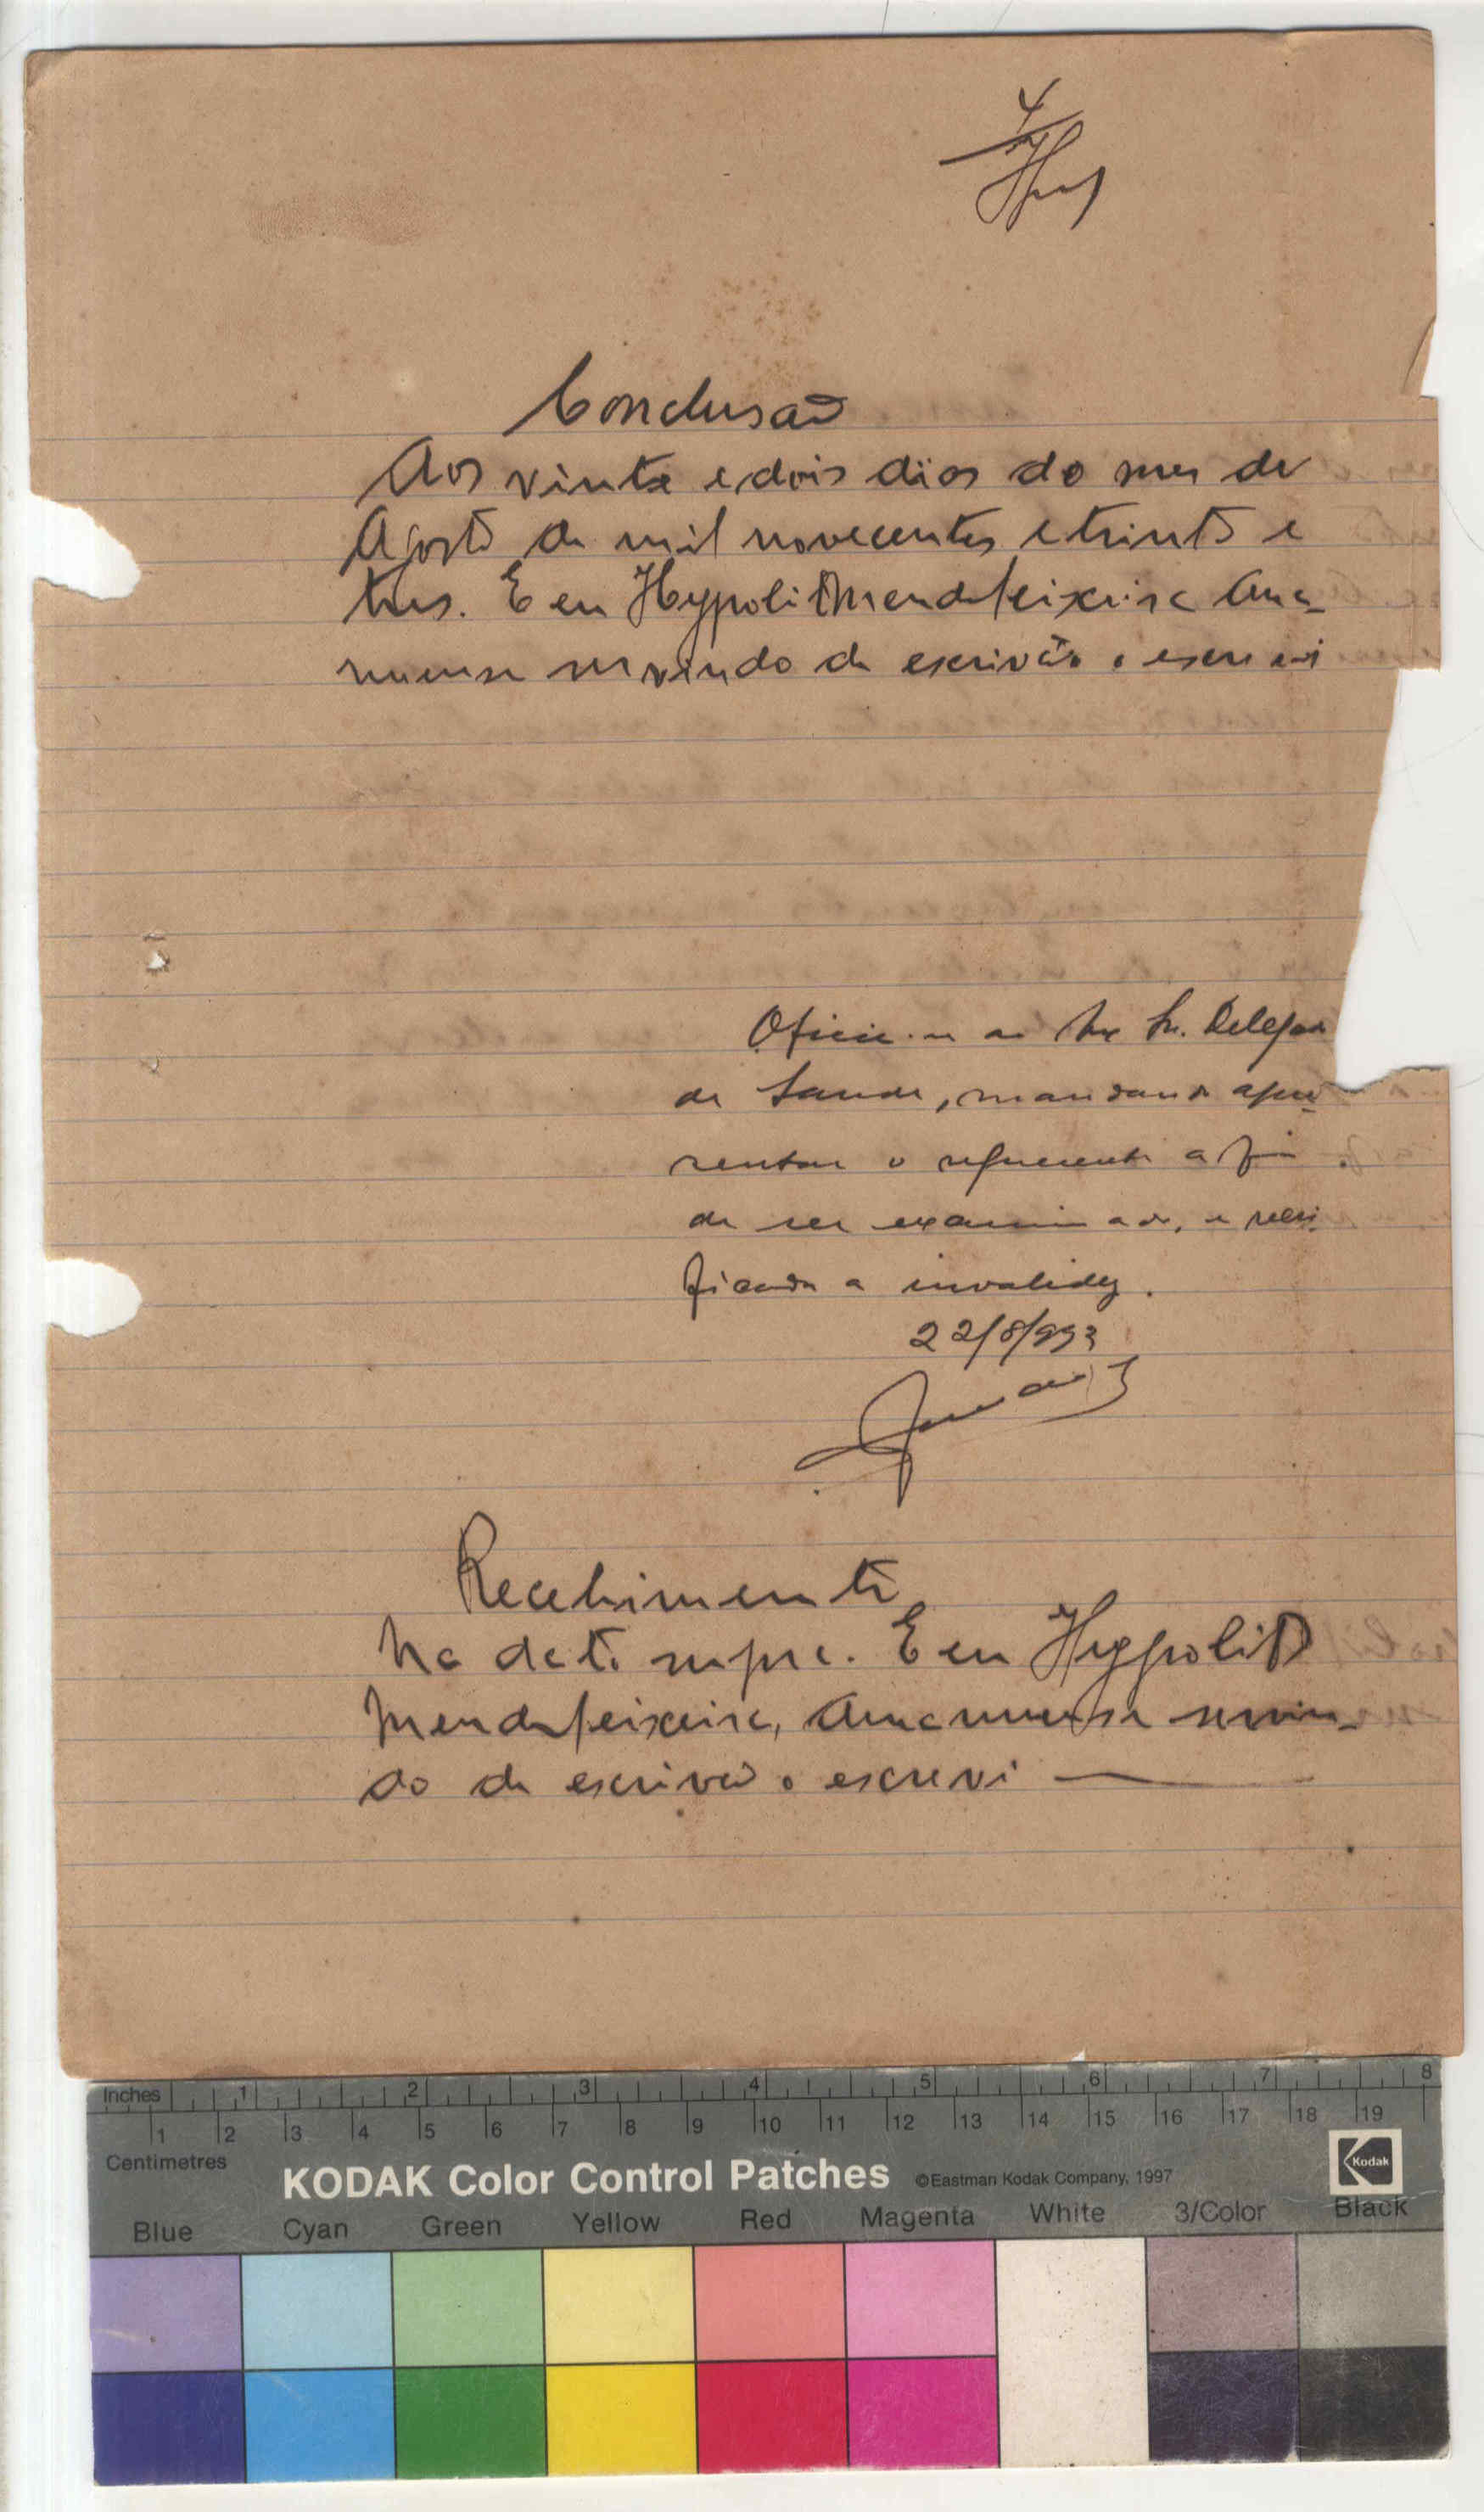 4
Conclusaõ
Aos vinte e dois dias do mes de
Agosto de mil novecentos e trinta e
tres. E eu Hypolito Mendes Teixeira Ama-
nuense servindo de escrivão o escrevi
Oficie-se ao Sr. Delegado
de Saude, mandando apre-
sentar o requerente a fim
de ser examinado, e veri-
ficada a invalidez.
22/8/933
Recebimento
Na data supra. E eu Hypolito
Mendes Teixeira, Amanuense servin-
do de escrivão o escrevi
Inches 1 2 3 4 5 6 7 8
1 2 3 4 5 6 7 8 9 10 11 12 13 14 15 16 17 18 19
Centimetres
KODAK Color Control Patches ©Eastman Kodak Company, 1997 Kodak
Blue Cyan Green Yellow Red Magenta White 3/Color Black